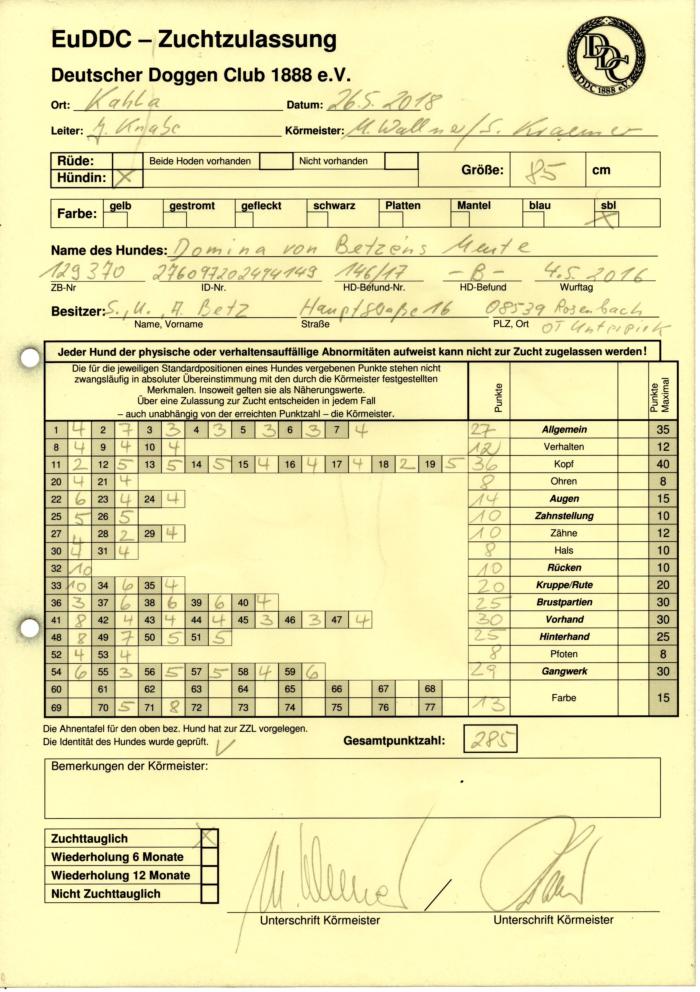 EuDDC – Zuchtzulassung
Deutscher Doggen Club 1888 e.V.
DDC
DDC 1888 e.V.
Ort: Kahla Datum: 26.5.2018
Leiter: J. Knabe Körmeister: M. Wallner/S. Kraemer
Rüde: Beide Hoden vorhanden Nicht vorhanden
Hündin: X Größe: 85 cm
Farbe: gelb gestromt gefleckt schwarz Platten Mantel blau sbl X
Name des Hundes: Domina von Betzens Meute
129370 276097202494149 146/17 - B - 4.5.2016
ZB-Nr ID-Nr. HD-Befund-Nr. HD-Befund Wurftag
Besitzer: S., U., A. Betz Hauptstraße 16 08539 Rosenbach
Name, Vorname Straße PLZ, Ort OT
Jeder Hund der physische oder verhaltensauffällige Abnormitäten aufweist kann nicht zur Zucht zugelassen werden!
Die für die jeweiligen Standardpositionen eines Hundes vergebenen Punkte stehen nicht
zwangsläufig in absoluter Übereinstimmung mit den durch die Körmeister festgestellten
Merkmalen. Insoweit gelten sie als Näherungswerte.
Über eine Zulassung zur Zucht entscheiden in jedem Fall
– auch unabhängig von der erreichten Punktzahl – die Körmeister.
Punkte Punkte Maximal
1 4 2 7 3 3 4 3 5 3 6 3 7 4 27 Allgemein 35
8 4 9 4 10 4 12 Verhalten 12
11 2 12 5 13 5 14 5 15 4 16 4 17 4 18 2 19 5 36 Kopf 40
20 4 21 4 8 Ohren 8
22 6 23 4 24 4 14 Augen 15
25 5 26 5 10 Zahnstellung 10
27 4 28 2 29 4 10 Zähne 12
30 4 31 4 8 Hals 10
32 10 10 Rücken 10
33 10 34 6 35 4 20 Kruppe/Rute 20
36 3 37 6 38 6 39 6 40 4 25 Brustpartien 30
41 8 42 4 43 4 44 4 45 3 46 3 47 4 30 Vorhand 30
48 8 49 7 50 5 51 5 25 Hinterhand 25
52 4 53 4 8 Pfoten 8
54 6 55 3 56 5 57 5 58 4 59 6 29 Gangwerk 30
60 61 62 63 64 65 66 67 68
69 70 5 71 8 72 73 74 75 76 77 13 Farbe 15
Die Ahnentafel für den oben bez. Hund hat zur ZZL vorgelegen.
Die Identität des Hundes wurde geprüft. Gesamtpunktzahl: 285
Bemerkungen der Körmeister:
Zuchttauglich X
Wiederholung 6 Monate
Wiederholung 12 Monate
Nicht Zuchttauglich
/
Unterschrift Körmeister Unterschrift Körmeister